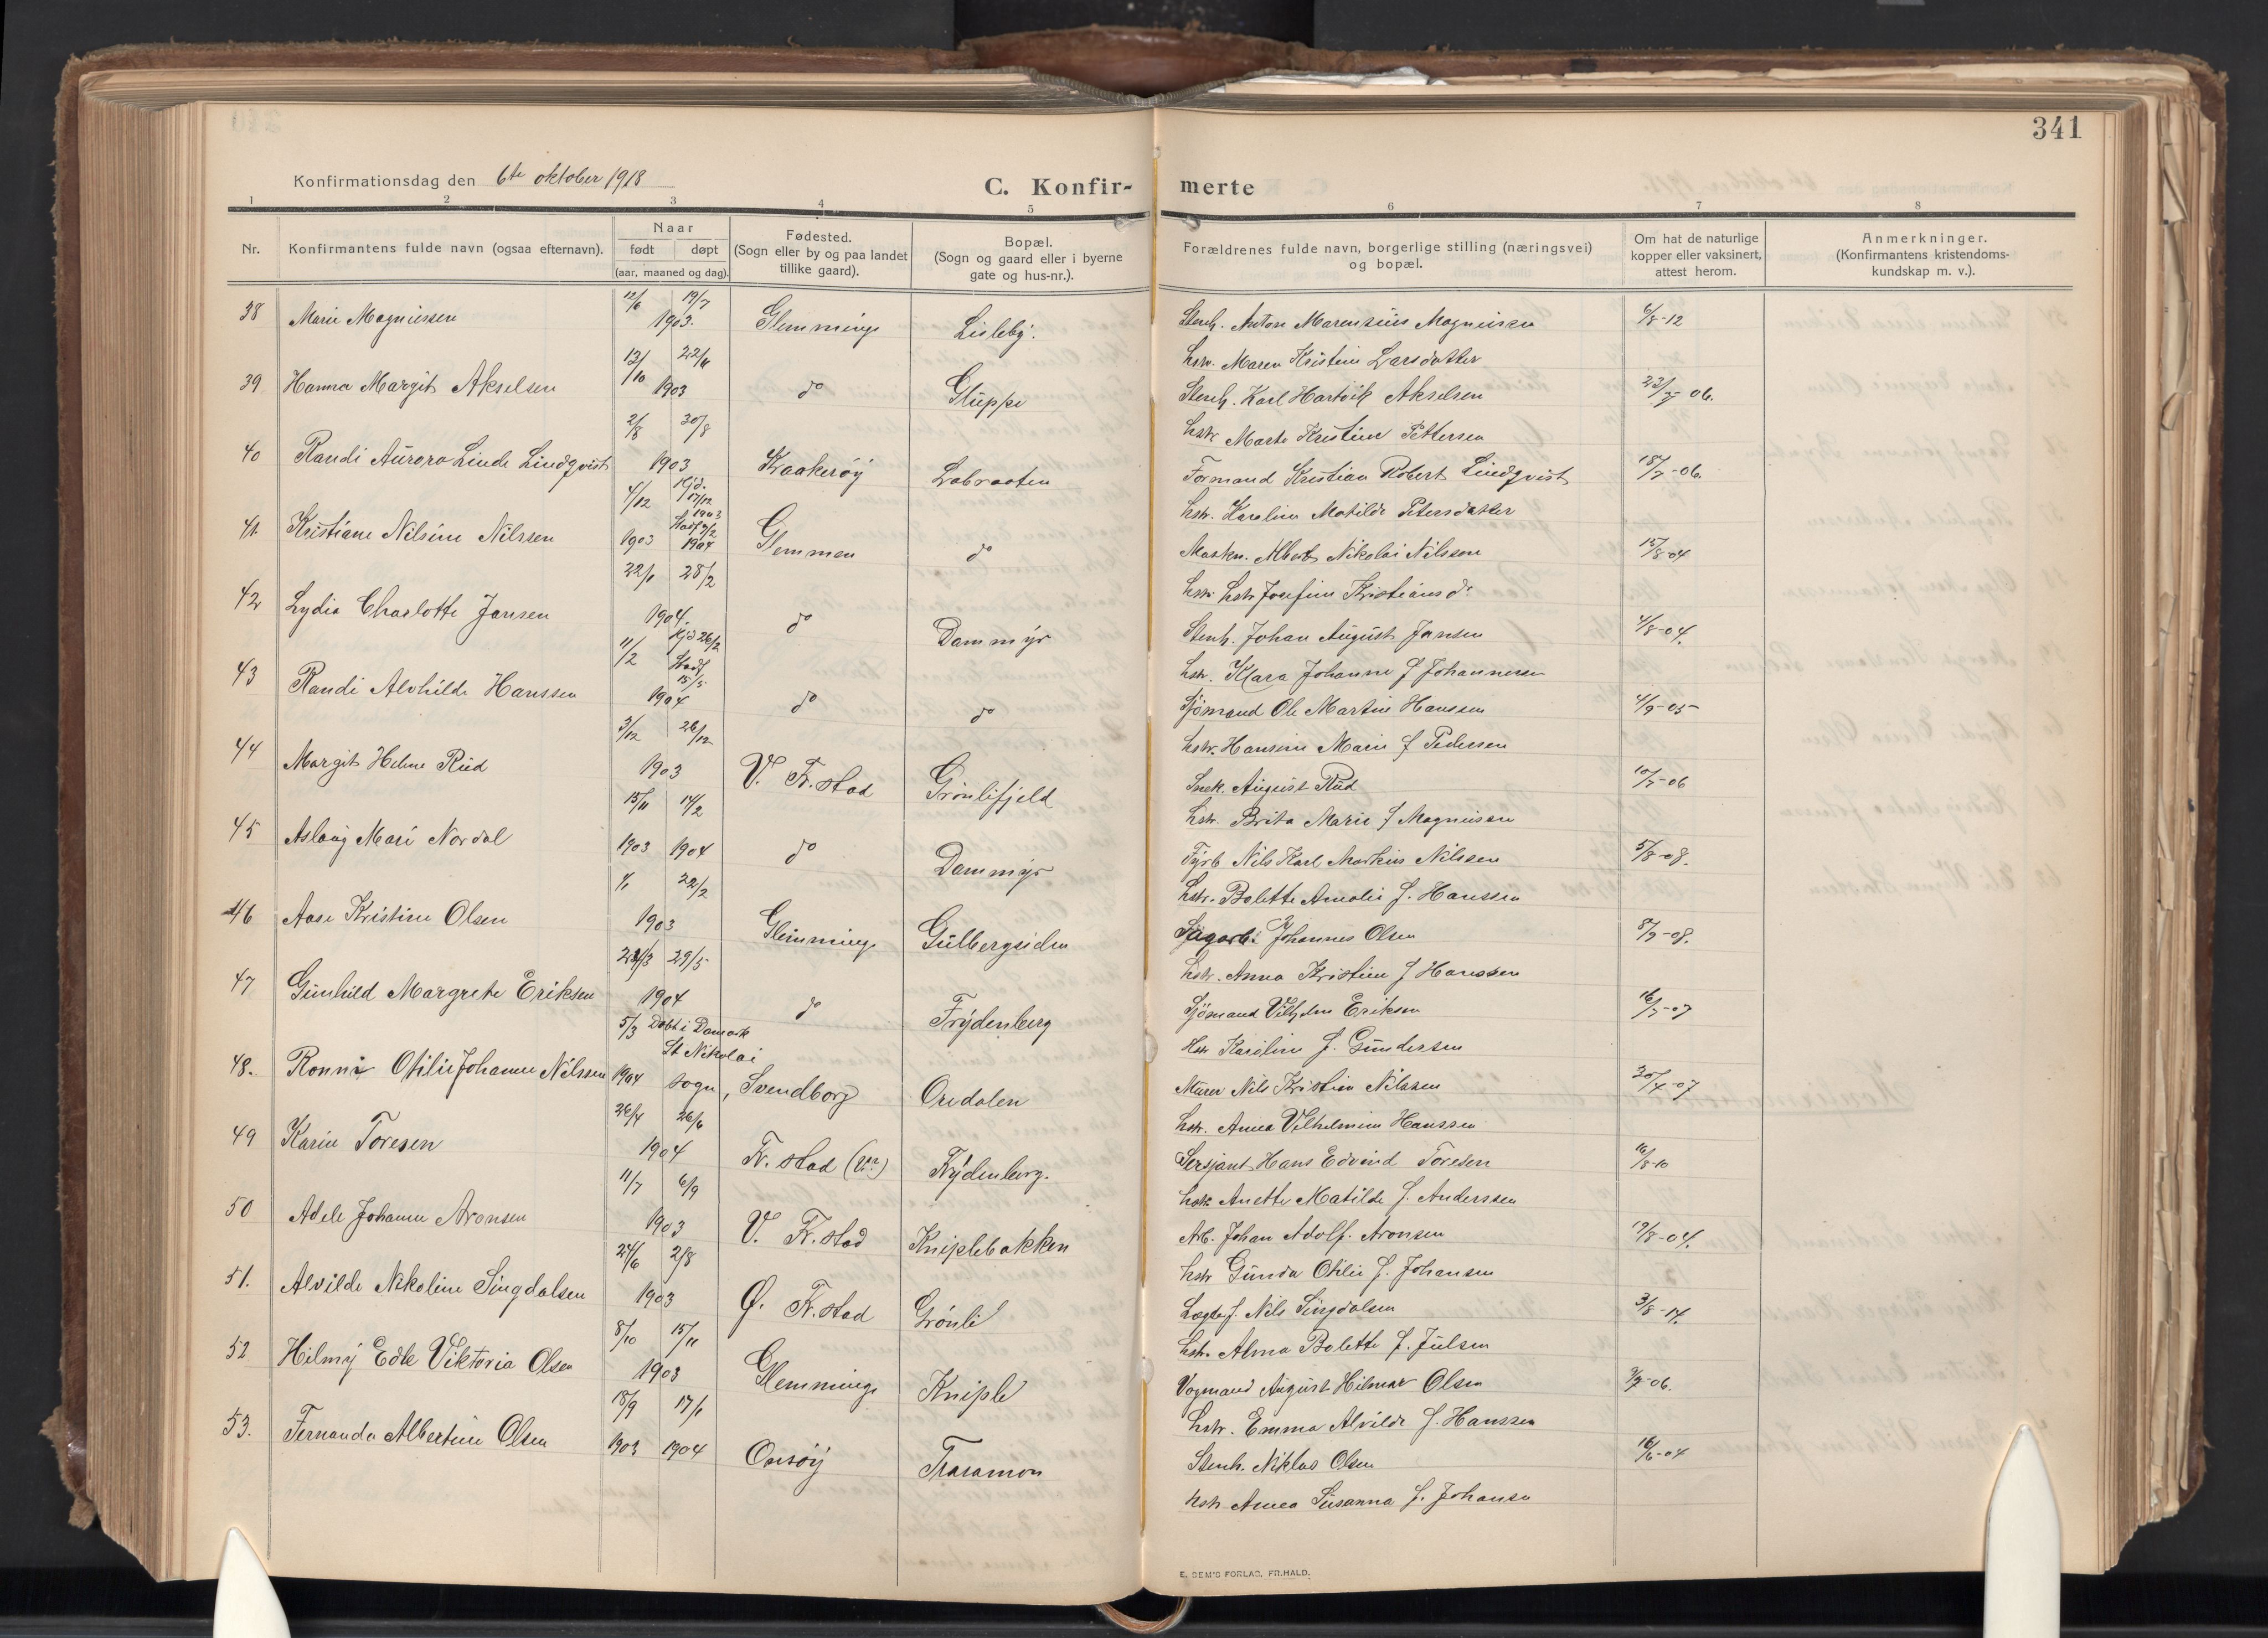 341
Konfirmationsdag den 6te oktober 1918
C. Konfir- merte
1 2 3 4 5 6 7 8
Nr. Konfirmantens fulde navn (ogsaa efternavn). Naar født døpt (aar, maaned og dag). Fødested. (Sogn eller by og paa landet tillike gaard). Bopæl. (Sogn og gaard eller i byerne gate og hus-nr.). Forældrenes fulde navn, borgerlige stilling (næringsvei) og bopæl. Om hat de naturlige kopper eller vaksinert, attest herom. Anmerkninger. (Konfirmantens kristendoms- kundskap m. v.).
38 Marie Magnussen 12/6 19/7 1903. Glemminge Lisleby. Stenh. Anton Marensius Magnussen 6/8-12
hstr. Maren Kristine Larsdatter
39 Hanna Margit Akselsen 13/10 22/11 1903 do Gluppe Stenh. Karl Hartvik Akselsen 23/7-06.
hstr Marte Kristine Pettersen
40 Randi Aurora Linde Lindqvist 2/8 30/8 1903 Kraakerøy Labraaten Formand Kristian Robert Lindqvist 18/7-06.
hstr. Karoline Matilde Petersdatter
41 Kristiane Nilsine Nilssen 4/12 1903 Hjd. 17/12 1903 Stadf 9/2 1904 Glemmen do Maskn. Albert Nikolai Nilssen 15/8-04
hstr. hstr Josefine Kristiansd.
42 Lydia Charlotte Jansen 22/1 28/2 1904. do Dammyr Stenh. Johan August Jansen 4/8-04.
hstr. Klara Johanne f Johannesen
43 Randi Alvhilde Hanssen 11/2 Hjd 26/2 Stadf 15/5 1904 do do Sjømand Ole Martin Hanssen 4/9-05
hstr. Hansine Marie f Pedersen
44 Margit Helene Rud 3/12 26/12 1903 V. Fr.stad Grønlifjeld Snek. August Rud 10/7-06
hstr. Brita Marie f Magnussen
45 Aslaug Mari Nordal 15/11 1903 14/2 1904 do Dammyr Fyrb Nils Karl Markus Nilssen 5/8-08.
hstr. Bolette Amalie f. Hanssen
46 Aase Kristine Olsen 4/1 22/2 1903 Glemminge Gulbergsiden Sagarb. Johannes Olsen 8/9-08.
hstr. Anna Kristine f Hanssen
47 Gunhild Margrete Eriksen 24/3 29/5 1904 do Frydenberg Sjømand Vilhelm Eriksen 16/7-07
Hstr Karoline f. Gundersen
48. Ronni Otilie Johanne Nilssen 5/3 1904 Døbt i Danmark St Nikolai sogn, Svendborg Oredalen Murer Nils Kristian Nilssen 20/4-07
hstr. Anna Vilhelmine Hanssen
49 Karin Toresen 26/4 26/6 1904 Fr. stad Frydenberg. Sersjant Hans Edvind Toresen 16/8-10
hstr. Anette Matilde f. Anderssen
50 Adele Johanne Aronsen 11/7 6/9 1903 V. Fr. stad Kniplebakken Arb. Johan Adolf. Aronsen 19/8-04.
hstr Gunda Otilie f. Johansen
51. Alvilde Nikoline Singdalsen 24/6 2/8 1903 Ø. Fr. stad Grønli Nils Singdalsen 3/8-14.
hstr. Alma Bolette f. Julsen
52 Hilmy Edle Viktoria Olsen 8/10 15/11 1903 Glemminge Kniple Vognmand August Hilmar Olsen 9/7-06.
hstr. Emma Alvilde f. Hanssen
53. Fernanda Albertine Olsen 18/9 1903 17/1 1904 Onsøy Trasamon Stenh. Niklas Olsen 16/6-04
hstr Anna Susanna f. Johansen
E. SEM'S FORLAG, FR.HALD.